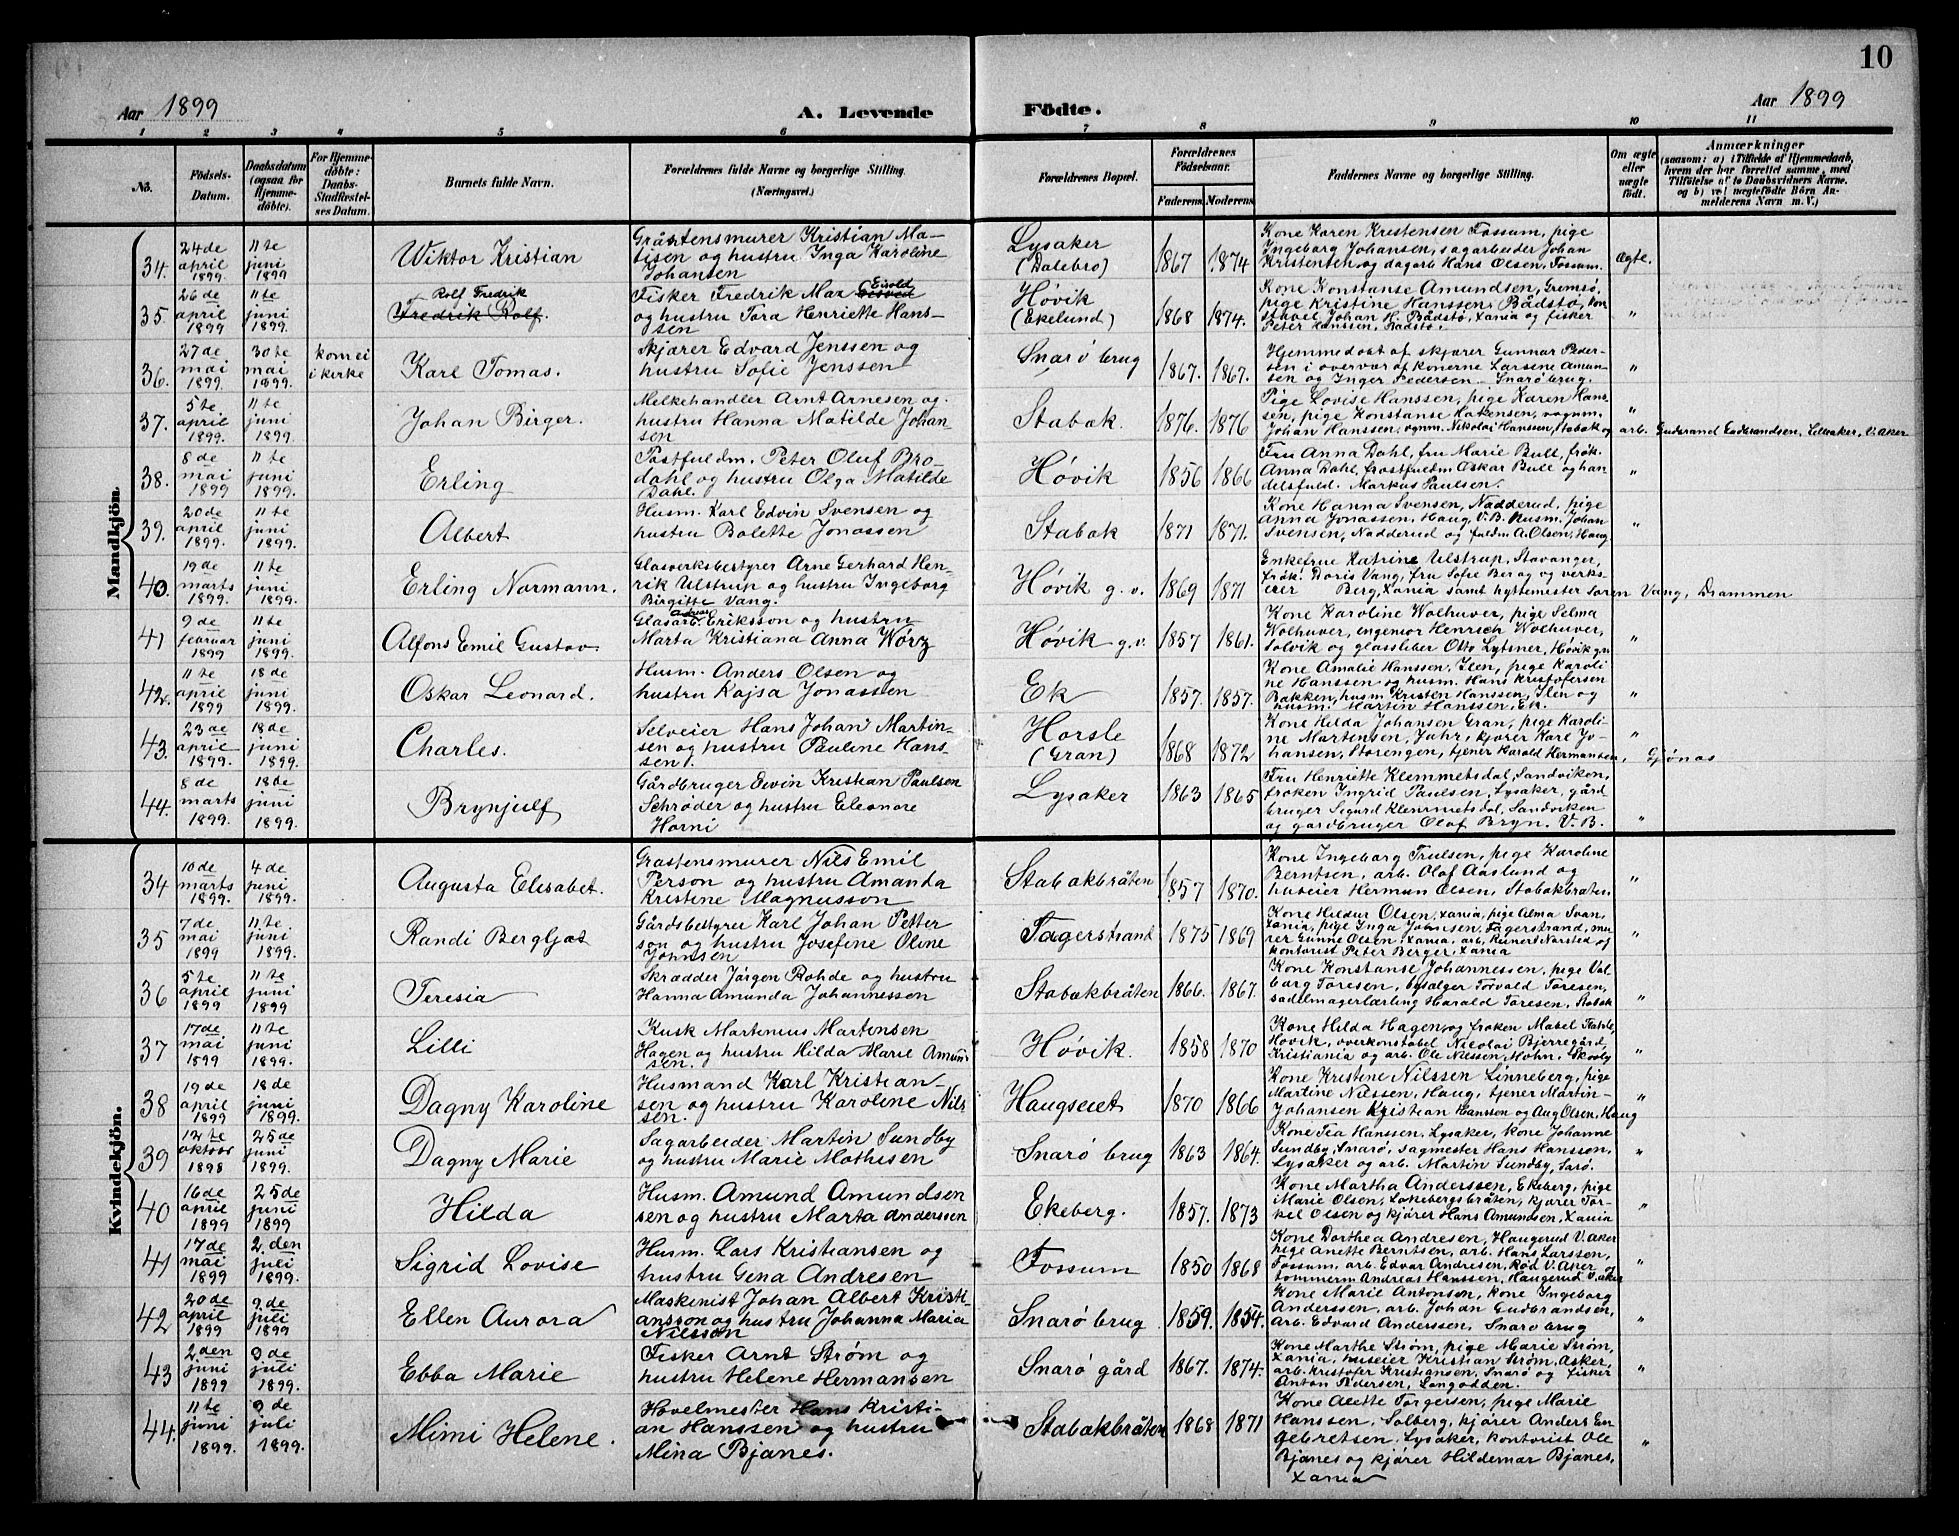 10
Aar 1899
A. Levende
Födte.
Aar 1899
1 2 3 4 5 6 7 8 9 10 11
No.
Födsels-
Datum.
Daabsdatum
(ogsaa for
Hjemme-
döbte).
For Hjemme-
döbte:
Daabs-
Stadfæstel-
ses Datum.
Barnets fulde Navn.
Forældrenes fulde Navne og borgerlige Stilling.
(Næringsvei.)
Forældrenes Bopæl.
Forældrenes
Födselsaar.
Faderens Moderens
Faddernes Navne og borgerlige Stilling.
Om ægte
eller
uægte
födt.
Anmærkninger
(saasom: a) i Tilfælde af Hjemmedaab,
hvem der har forrettet samme, med
Tilföielse af to Daabsvidners Navne,
og b) ved uægtefödte Börn An-
melderens Navn m. V.)
Mandkjön.
34.
24de
april
1899
11te
juni
1899
Wiktor Kristian
Gråstensmurer Kristian Ma-
tisen og hustru Inga Karoline
Johansen
Lysaker
(Dalebro)
1867
1874
Kone Karen Kristensen Fossum, pige
Ingeborg Johansen, sagarbeider Johan
Kristensen og dagarb Hans Olsen, Fossum.
Ægte.
35.
26de
april
1899
11te
juni
1899.
Rolf Fredrik
Fredrik Rolf.
Fisker Fredrik Max
og hustru Tora Henriette Hans-
sen
Høvik
(Ekelund)
1868
1874.
Kone Konstanse Amundsen, Gromsø,
pige Kristine Hanssen, Bådstø, kon
stavel Johan H. Bådstø, Xania og fisker
Peter Hanssen, Bådstø.
"
36.
27de
mai
1899.
30te
mai
1899.
kom ei
i kirke
Karl Tomas.
Skjærer Edvard Jenssen og
hustru Sofie Jenssen
Snarø brug
1867.
1867.
Hjemmedøbt af skjærer Gunnar Peder-
sen i overvær af konerne Larsine Amun-
sen og Inger Pedersen Snarø brug.
"
37.
5te
april
1899.
11te
juni
1899.
Johan Birger.
Melkehandler Arnt Arnesen og
hustru Hanna Matilde Johan
sen
Stabæk.
1876.
1876
Pige Lovise Hanssen, pige Karen Hans-
sen, pige Konstanse Håkensen, vognm.
Johan Hanssen, vognm. Nikolai Hanssen, Stabæk og
"
arb. Gudbrand Gudbrandsen, Lilleaker, V. Aker
38.
8de
mai
1899
11te
juni
1899.
Erling
Postfuldm. Peter Oluf Bro-
dahl og hustru Olga Matilde
Dahl.
Høvik
1856
1866
Fru Anna Dahl, fru Marie Bull, frøk.
Anna Dahl, postfuldm Oskar Bull og han
delsfuld. Markus Paulsen.
"
39.
20de
april
1899.
11te
juni
1899.
Albert
Husm. Karl Edvin Svensen og
hustru Bolette Jonassen
Stabæk
1871
1871.
Kone Hanna Svensen, Nadderud, pige
Anna Jonassen, Haug V.B. husm. Johan
Svensen, Nadderud og fuldm A. Olsen, Haug
"
40.
19de
marts
1899.
11te
juni
1899.
Erling Normann.
Glasverksbestyrer Arne Gerhard Hen-
rik Ulstrup og hustru Ingeborg
Birgitte Vang.
Høvik g.v.
1869
1871
Enkefrue Katrine Ulstrup, Stavanger,
frøk. Doris Vang, fru Sofie Berg og verks-
eier Berg, Xania samt hyttemester Søren Vang, Drammen
41
9de
februar
1899
11te
juni
1899.
Alfons Emil Gustav.
Glasarb. Eriksson og hustru
Marta Kristiana Anna Wörz
Høvik g.v.
1857
1861.
Kone Karoline Wolhuver, pige Selma
Wolhuver, engensør Henrich Wolhuver,
Solvik og glassliber Otto Lytsner, Høvik gv.
"
42.
11te
april
1899
18de
juni
1899.
Oskar Leonard.
Husm. Anders Olsen og
hustru Kajsa Jonassen
Ek
1857.
1857.
Kone Amalie Hanssen, Ilen, pige Karoli
ne Hanssen og husm. Hans Kristofersen
Bakken, husm Kristen Hanssen, Ilen og
husm. Martin Hanssen, Ek.
"
43.
23de
april
1899.
18de
juni
1899.
Charles.
Selveier Hans Johan Martin-
sen og hustru Pauline Hans-
sen.
Horsle
(Gran)
1868
1872
Kone Hilda Johansen Gran, pige Karoli-
ne Martensen, Jahr, kjører Karl Jo-
hansen, Storengen, tjener Harold Hermansen, Gjønæs
"
44.
8de
marts
1899.
18de
juni
1899.
Brynjulf
Gårdbruger Eivin Kristian Paulsen
Schrøder og hustru Eleonore
Horni
Lysaker
1863
1865
Fru Henriette Klemmetsdal, Sandviken,
frøken Ingrid Paulsen, Lysaker, gård
bruger Sigurd Klemmetsdal, Sandviken
og gårdbruger Olaf Bryn. V.B.
"
Kvindekjön.
34
10de
marts
1899.
4de
juni
1899.
Augusta Elisabet.
Gråstensmurer Nils Emil
Person og hustru Amanda
Kristine Magnusson
Stabækbråten
1857
1870.
Kone Ingeborg Trulsen, pige Karoline
Berntsen, arb. Olaf Aaslund og
huseier Herman Olsen, Stabækbråten.
"
35
7de
mai
1899
11te
juni
1899.
Randi Bergljot
Gårdsbestyrer Karl Johan Petter
son og hustru Josefine Oline
Johnsen
Fagerstrand
1875
1869
Kone Hildur Olsen, Xania, pige Alma Svan,
Xania, pige Inga Johnsen, Fagerstrand, mu-
rer Gunne Olsen, Xania, arb. Reinert Narstad og
kontorist Peter Berger, Xania
"
36
5te
april
1899
11te
juni
1899
Teresia
Skrædder Jørgen Rohde og hustru
Hanna Amunda Johannessen
Stabækbråten
1866.
1867.
Kone Konstanse Johannessen, pige Val
borg Toresen, bysælger Torvald Toresen,
sadelmagerlærling Harald Toresen,
"
37
17de
mai
1899
11te
juni
1899.
Lilli
Kusk Martinius Martensen
Hagen og hustru Hilda Marie Amun
sen.
Høvik.
1858
1870
Kone Hilda Hagen og frøken Mabel
Høvik, overkonstabel Nicolai Bjerregård,
Kristiania og arb. Ole Nilssen Mohn, Skovly
"
38
19de
april
1899
18de
juni
1899.
Dagny Karoline
Husmand Karl Kristian-
sen og hustru Karoline Nils
sen.
Haugseiet
1870
1866
Kone Kristine Nilssen Linneberg, pige
Martine Nilssen, Haug, tjener Martin
Johansen Kristian Hanssen og Aug Olsen, Haug
"
39
12te
oktober
1898
25de
juni
1899.
Dagny Marie
Sagarbeider Martin Sundby
og hustru Marie Mathisen
Snarø brug
1863
1864.
Kone Tea Hanssen, Lysaker, kone Johanne
Sundby, Snarø, sagmester Hans Hansson,
Lysaker og arb. Martin Sundby, Sarø.
"
40
16de
april
1899
25de
juni
1899
Hilda
Husm. Amund Amundsen
sen og hustru Marta Anderssen
Ekeberg.
1857.
1873
Kone Martha Anderssen, Ekeberg, pige
Marie Olsen, Løkebergsbråten, kjører Tor-
kil Olsen og kjører Hans Amundsen, Xania
"
41
17de
mai
1899
2den
juli
1899.
Sigrid Lovise
Husm. Lars Kristiansen og
hustru Gena Andresen
Fossum
1850
1868
Kone Dorthea Andresen, Haugerud V. Aker
pige Anette Berntsen, arb. Hans Larssen,
Fossum, arb. Edvar Andresen, Rød V. Aker og
tømmerm Andreas Hanssen, Haugerud V. aker
"
42
20de
april
1899
9de
juli
1899
Ellen Aurora
Maskinist Johan Albert Kristi
ansson og hustru Johanna Maria
Nilsson
Snarø brug
1859.
1854.
Kone Marie Antonsen, kone Ingeborg
Anderssen, arb. Johan Gudbrandsen,
arb. Edvard Anderssen, Snarø brug
"
43
2den
juni
1899
9de
juli
1899.
Ebba Marie
Fisker Arnt Strøm og
hustru Helene Hermansen
Snarø gård
1867.
1874.
Kone Marthe Strøm, pige Marie Strøm,
Xania, huseier Kristian Strøm, Asker,
arb. Kristofer Kristiansen, Snarø og fisker
Anton Pedersen, Langodden.
"
44.
11te
juni
1899.
9de
juli
1899.
Mimi Helene.
Høvelmester Hans Kristi-
an Hanssen og hustru
Mina Bjånes.
Stabækbråten
1868
1871
Kone Alette Torgersen, pige Marie
Hanssen, Solberg, kjører Anders En
gebretsen, Lysaker, kontorist Ole
Bjånes og kjører Hildemar Bjånes,
Xania
"